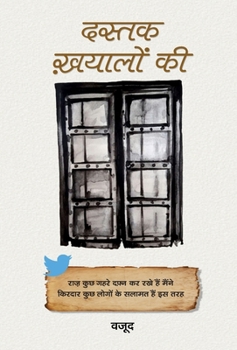 दस्तक
ख़यालों की
राज़ कुछ गहरे दफ़्न कर रखे हैं मैंने
किरदार कुछ लोगों के सलामत हैं इस तरह
वजूद